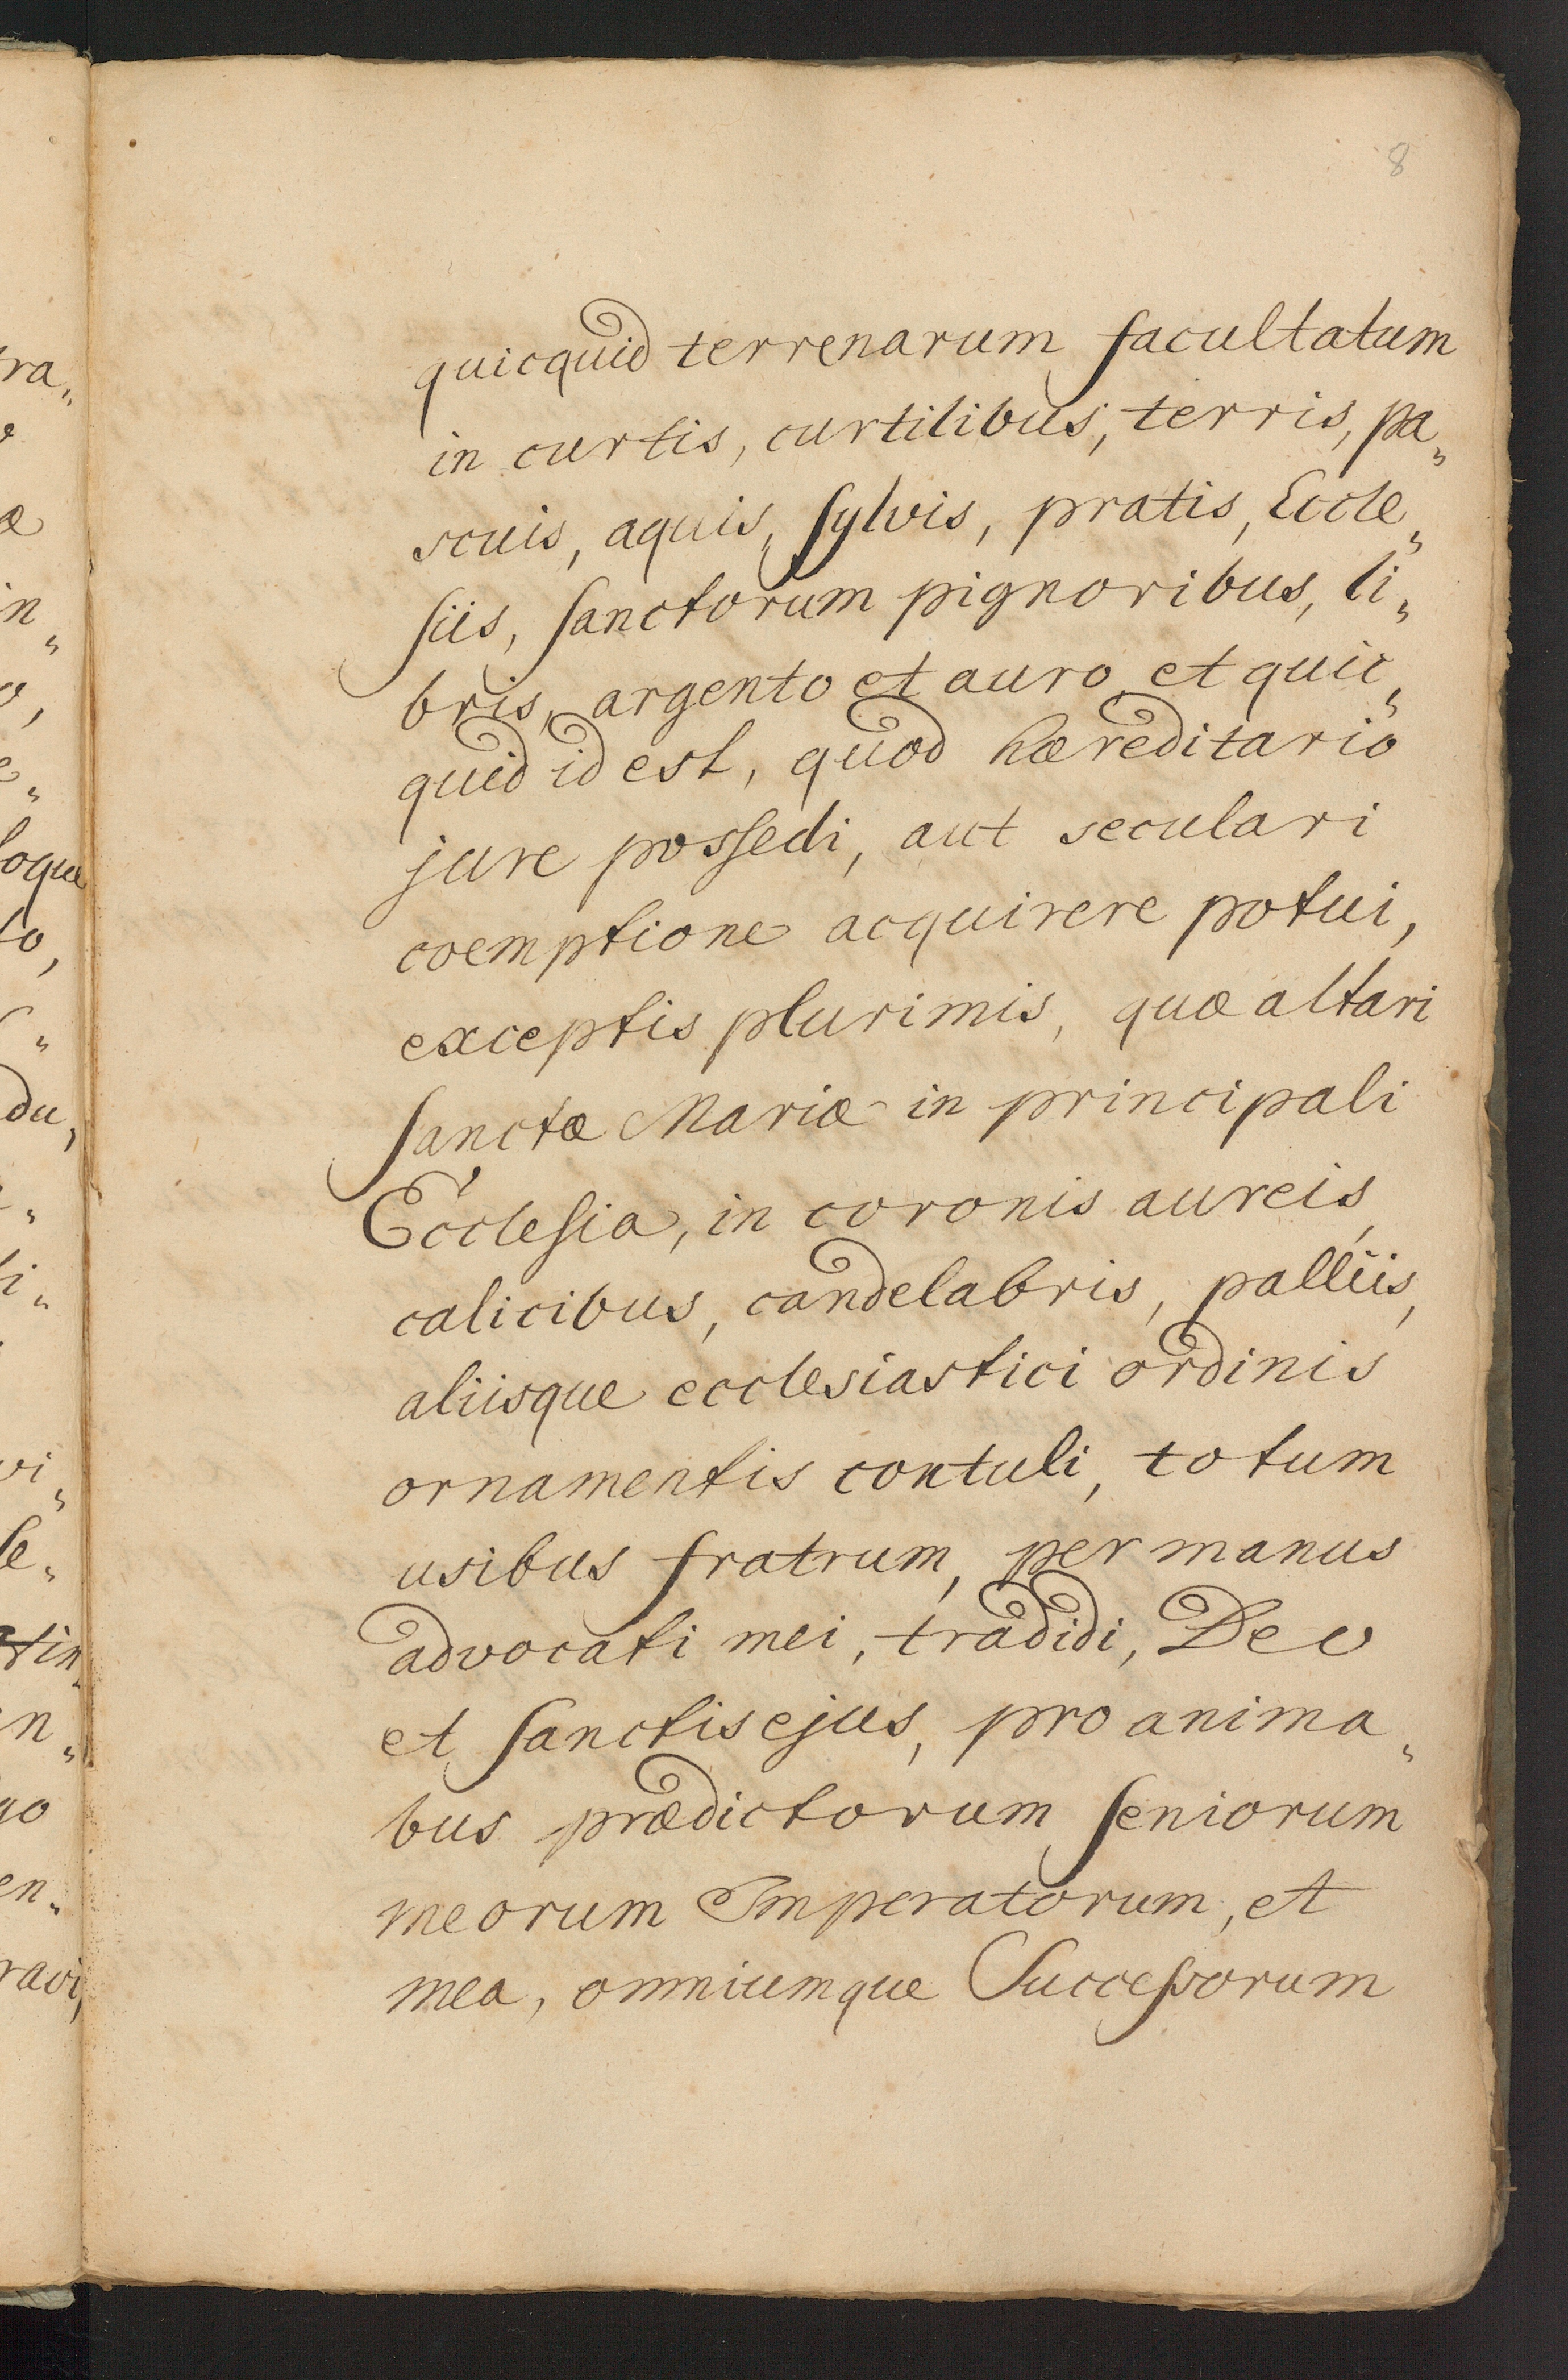 8
quicquid terrenarum facultatum
in curtis, curtilibus, terris, pa„
scuis, aquis, sylvis, pratis, Eccle„
siis, sanctorum pignoribus, li„
bris, argento et auro, et quic„
quid id est, quod hæreditario
jure possedi, aut seculari
coemptione acquirere potui,
exceptis plurimis, quæ altari
sanctæ Mariæ in principali
Ecclesia, in coronis aureis,
calicibus, candelabris, palliis,
aliisque ecclesiastici ordinis
ornamentis contuli, totum
usibus fratrum, per manus
advocati mei, tradidi, Deo
et sanctis ejus, pro anima„
bus prædictorum seniorum
meorum Imperatorum, et
mea, omniumque Successorum